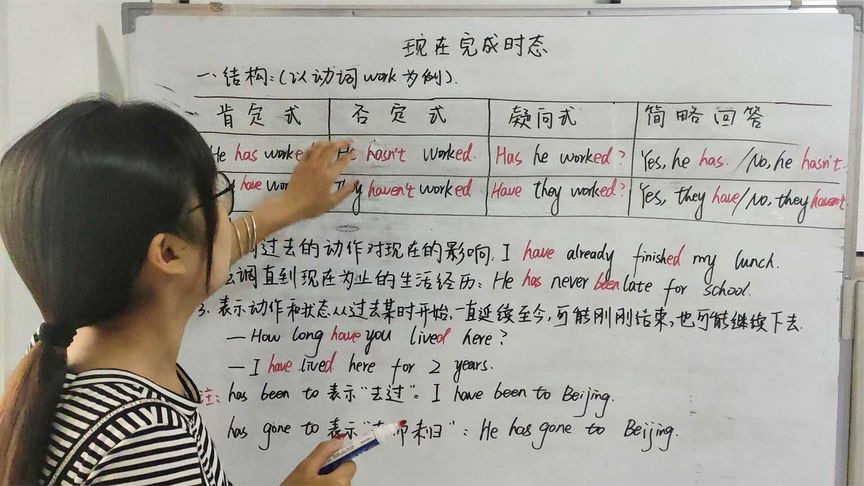 现在完成时态
一.结构:(以动词work为例).
肯定式 否定式 疑问式 简略回答
He has worked He hasn't worked. Has he worked? Yes, he has. /No, he hasn't.
have They haven't worked Have they worked? Yes, they have/No, they haven't
过去的动作对现在的影响: I have already finished my lunch.
调直到现在为止的生活经历: He has never been late for school.
3. 表示动作和状态从过去某时开始,一直延续至今,可能刚刚结束,也可能继续下去.
— How long have you lived here?
— I have lived here for 2 years.
注: has been to 表示"去过": I have been to Beijing.
has gone to 表示"未归": He has gone to Beijing.